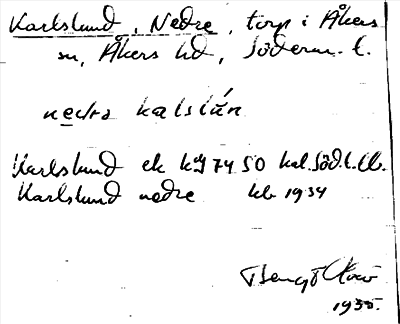 Karlslund, Nedre, torp i Åkers
sn, Åkers hd, Söderm. l.
nedra kalslán
Karlslund ek kbl 74 50 hal. Söd. l.
Karlslund nedre kb 1934
Bengt
1935.